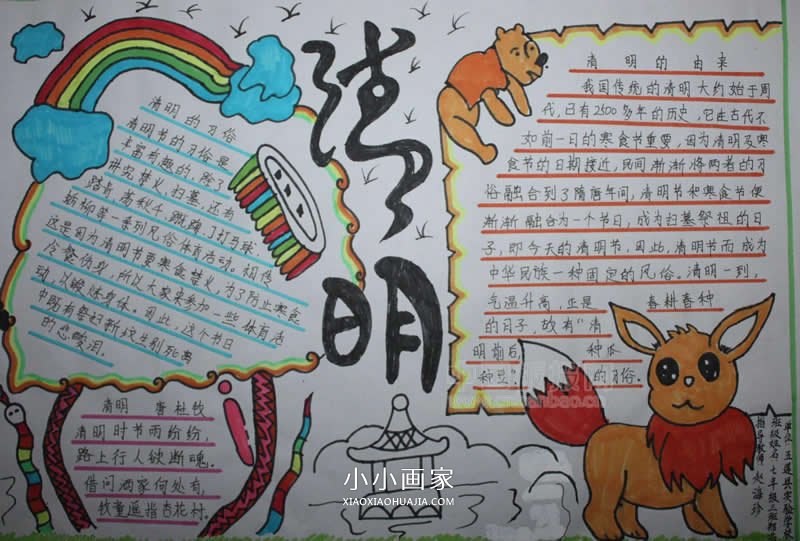 清明
清明的习俗
清明节的习俗是
丰富有趣的，除了
讲究禁火、扫墓，还有
踏青、荡秋千、蹴鞠、打马球、
插柳等一系列风俗体育活动。相传
这是因为清明节要寒食禁火，为了防止寒食
冷餐伤身，所以大家来参加一些体育活
动，以锻炼身体。因此，这个节日
中既有祭扫新坟生别死离
的悲酸泪。
清明 唐 杜牧
清明时节雨纷纷，
路上行人欲断魂。
借问酒家何处有，
牧童遥指杏花村。
清明的由来
我国传统的清明大约始于周
代，已有2500多年的历史，它在古代不
如前一日的寒食节重要，因为清明及寒
食节的日期接近，民间渐渐将两者的习
俗融合，到了隋唐年间，清明节和寒食节便
渐渐融合为一个节日，成为扫墓祭祖的日
子，即今天的清明节。因此，清明节而成为
中华民族一种固定的风俗。清明一到，
气温升高，正是 春耕春种
的日子，故有“清
明前后， 种瓜
种豆” 的习俗。
单位 五莲县实验学校
班级姓名 七年级三班
指导教师 赵海珍
小小画家
XIAOXIAOHUAJIA.COM